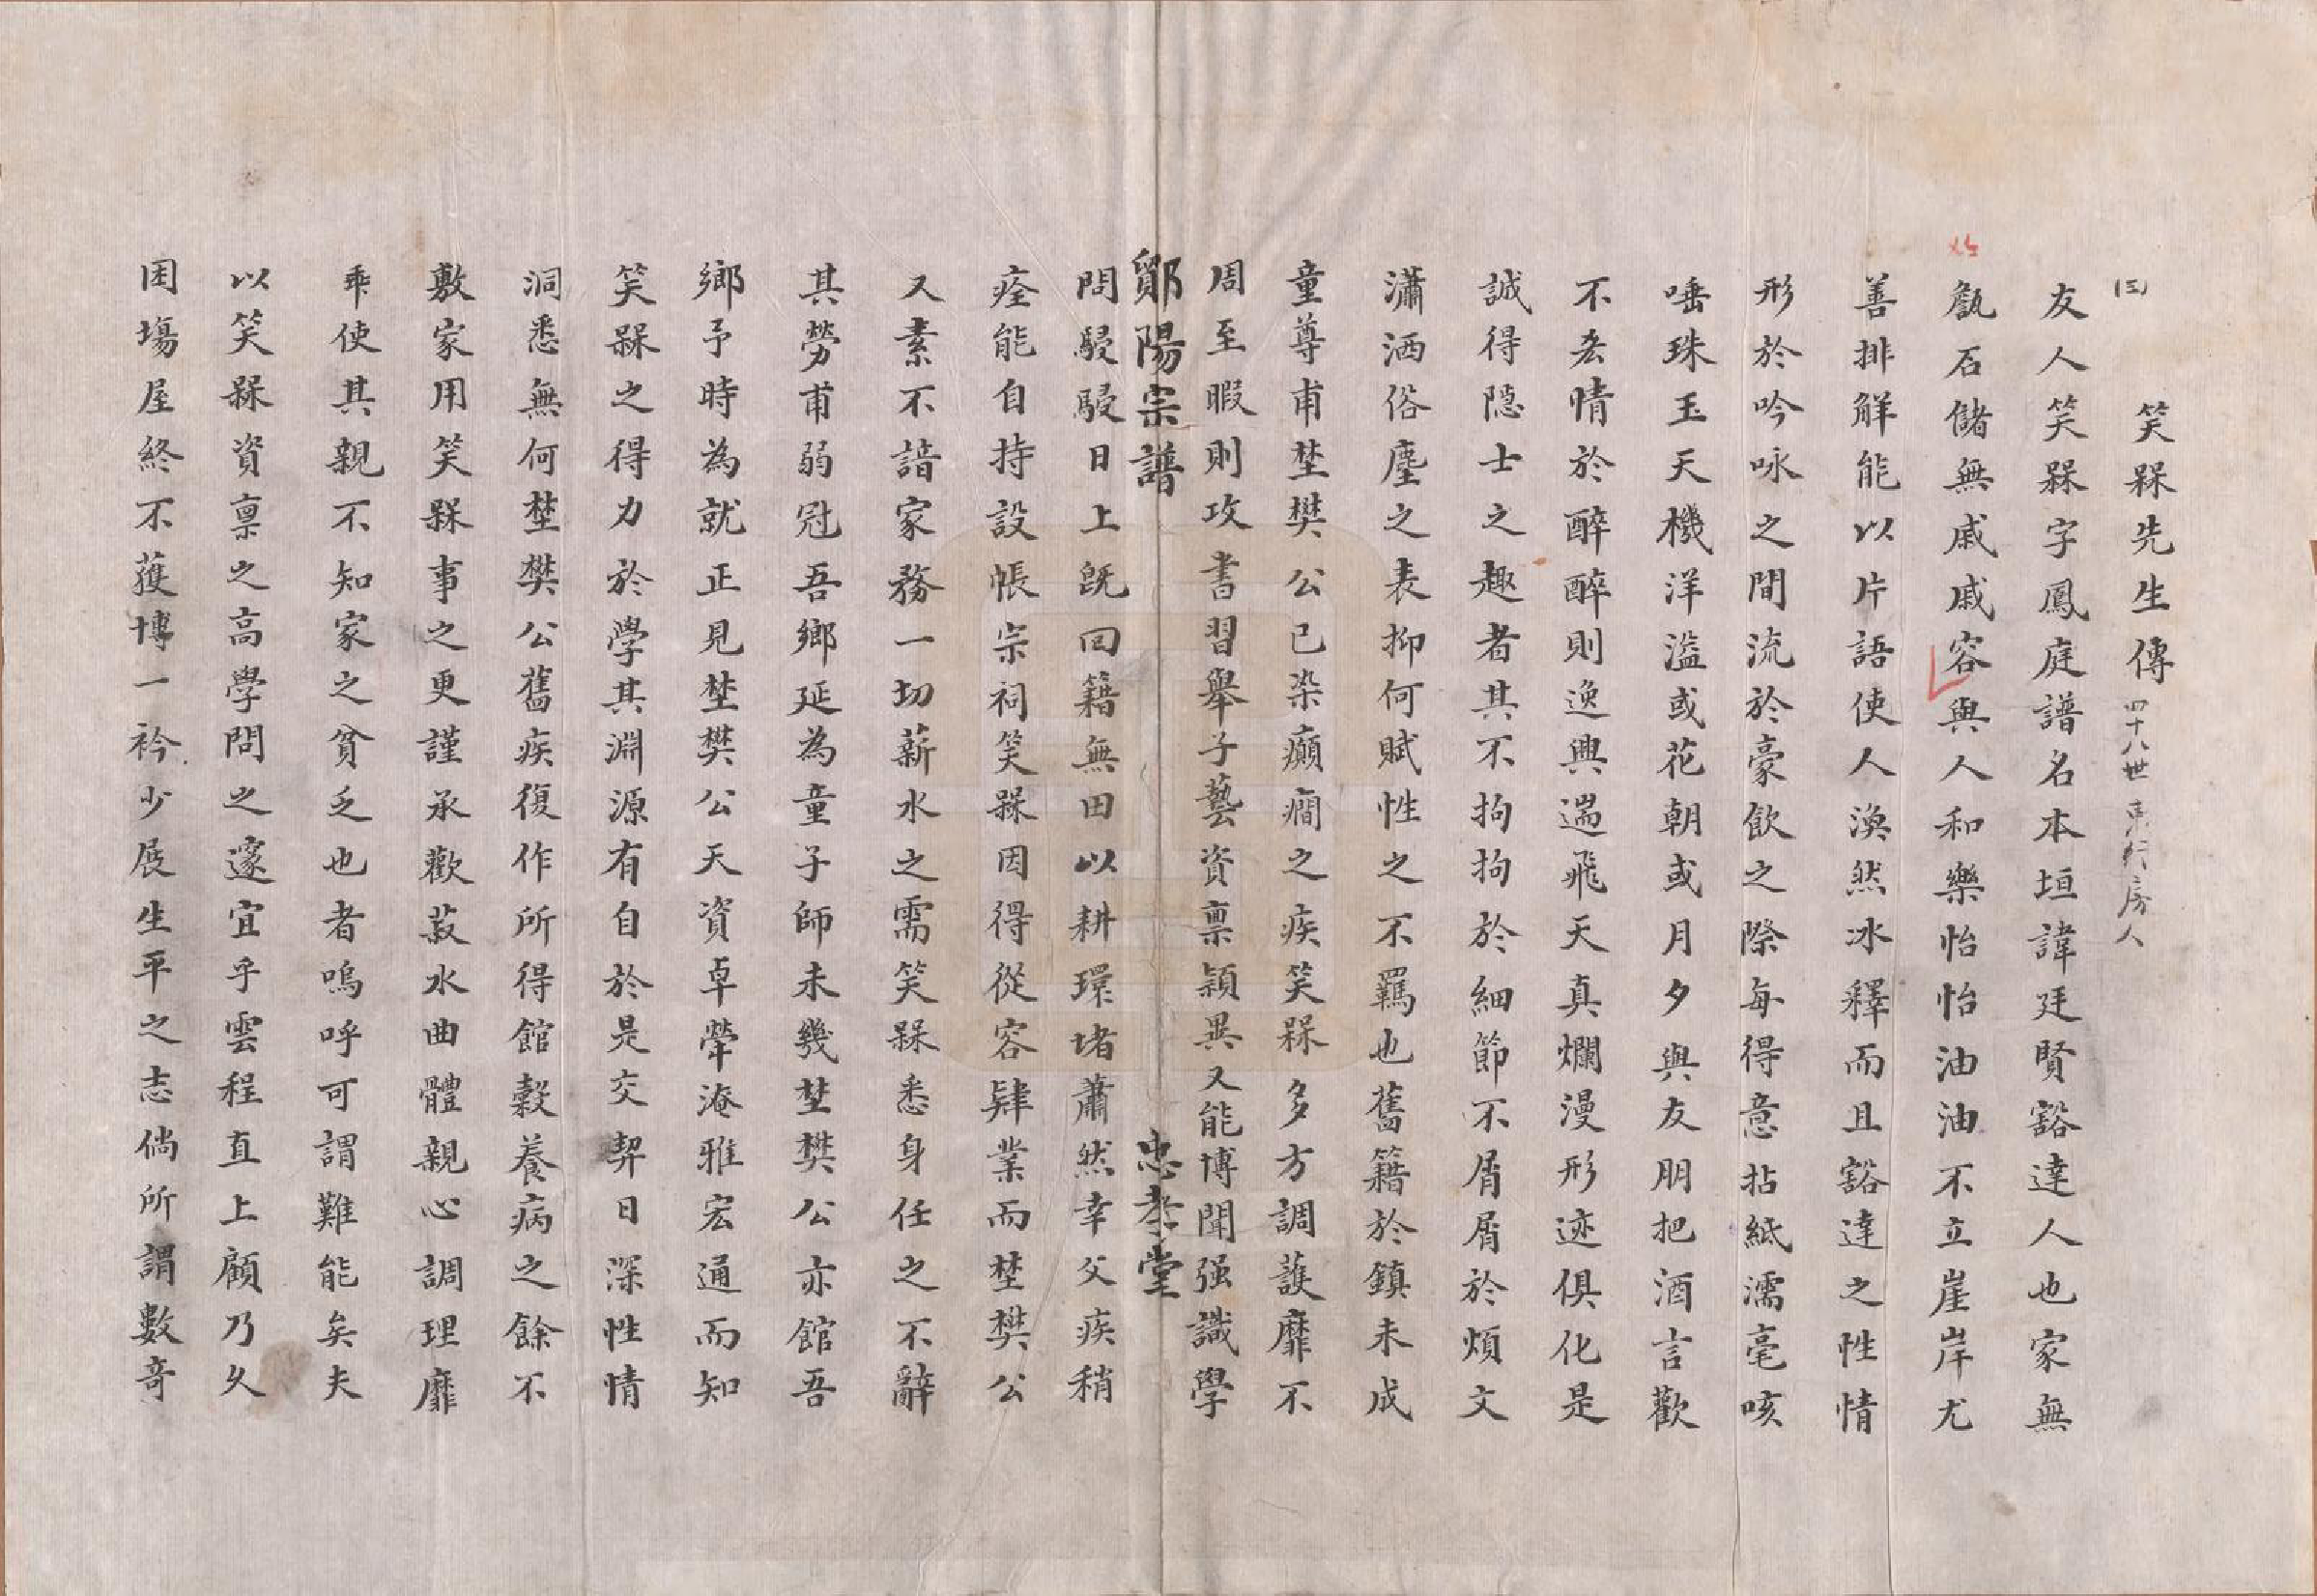 三
笑槑先生傳 四十八世 房人
友人笑槑字鳳庭譜名本垣諱廷賢豁達人也家無
甔石儲無戚戚容與人和樂怡怡油油不立崖岸尤
善排解能以片語使人渙然冰釋而且豁達之性情
形於吟咏之間流於豪飲之際每得意拈紙濡毫咳
唾珠玉天機洋溢或花朝或月夕與友朋把酒言歡
不忝情於醉醉則逸興遄飛天真爛漫形迹俱化是
誠得隱士之趣者其不拘拘於細節不屑屑於煩文
瀟洒俗塵之表抑何賦性之不羈也舊籍於鎮未成
童尊甫埜樊公已染癲癇之疾笑槑多方調護靡不
周至暇則攻書習舉子藝資禀穎異又能博聞强識學
鄮陽宗譜 忠孝堂
問駸駸日上旣回籍無田以耕環堵蕭然幸父疾稍
痊能自持設帳宗祠笑槑因得從容肄業而埜樊公
又素不諳家務一切薪水之需笑槑悉身任之不辭
其勞甫弱冠吾鄉延為童子師未幾埜樊公亦館吾
鄉予時為就正見埜樊公天資卓犖淹雅宏通而知
笑槑之得力於學其淵源有自於是交契日深性情
洞悉無何埜樊公舊疾復作所得館穀養病之餘不
敷家用笑槑事之更謹承歡菽水曲體親心調理靡
乖使其親不知家之貧乏也者嗚呼可謂難能矣夫
以笑槑資禀之高學問之邃宜乎雲程直上顧乃久
困場屋終不獲博一衿少展生平之志倘所謂數奇